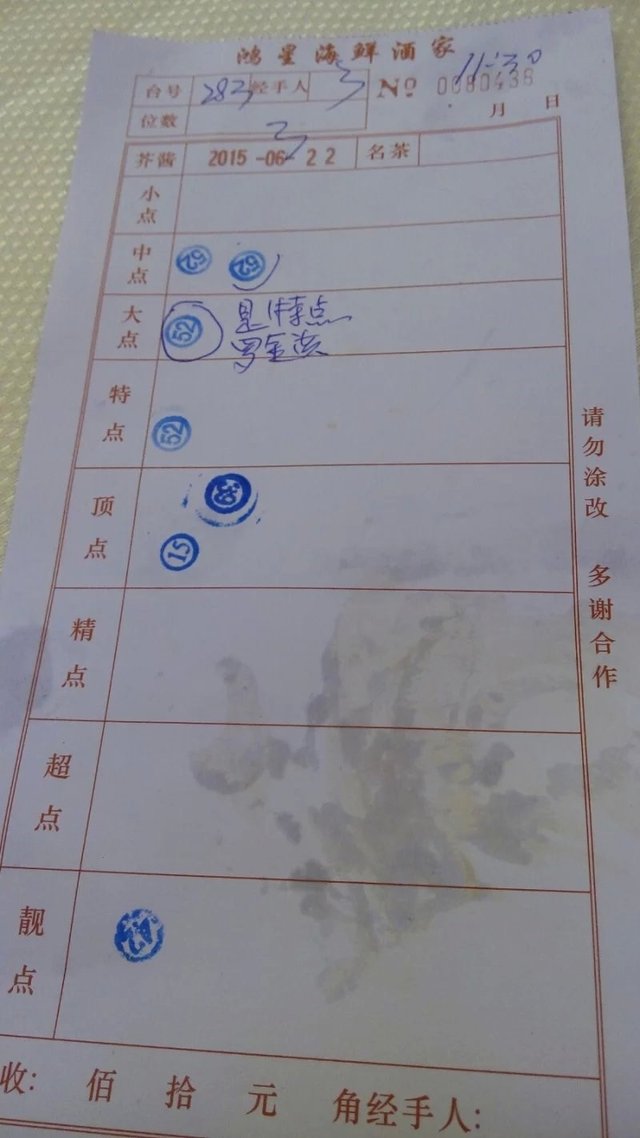 鸿星海鲜酒家
11:30
台号 283 经手人 No 0080438
位数 3
月 日
芥酱 2015-06-22 名茶
小点
中点
大点 52 是特点
特点 52
顶点
15
精点
超点
靓点
请勿涂改 多谢合作
收: 佰 拾 元 角经手人: